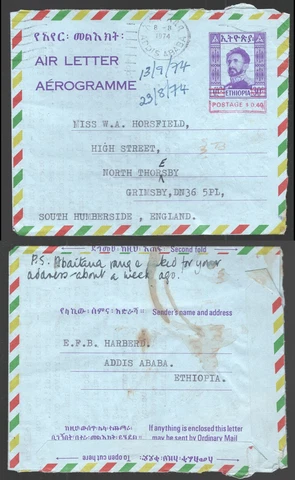 የአየር፡ መልእክት፡
AIR LETTER
AÉROGRAMME
1974
ADDIS ABABA
13/9/74
23/8/74
ኢትዮጵያ
ETHIOPIA
POSTAGE $0.40
MISS W.A. HORSFIELD,
HIGH STREET,
E
NORTH THORSBY
GRIMSBY, DN36 5PL,
SOUTH HUMBERSIDE , ENGLAND.
Second fold
P.S. asked for your
address about a week ago.
Sender's name and address
E.F.B. HARBERD.
ADDIS ABABA.
ETHIOPIA.
If anything is enclosed this letter
may be sent by Ordinary Mail
To open cut here